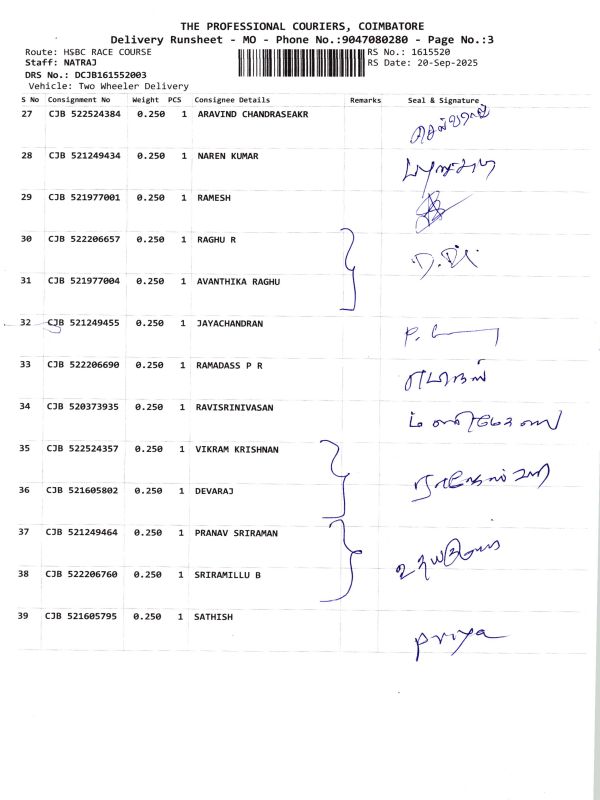 THE PROFESSIONAL COURIERS, COIMBATORE
Delivery Runsheet - MO - Phone No.:9047080280 - Page No.:3
Route: HSBC RACE COURSE
RS No.: 1615520
Staff: NATRAJ
RS Date: 20-Sep-2025
DRS No.: DCJB161552003
Vehicle: Two Wheeler Delivery
S No Consignment No Weight PCS Consignee Details Remarks Seal & Signature
27 CJB 522524384 0.250 1 ARAVIND CHANDRASEAKR
28 CJB 521249434 0.250 1 NAREN KUMAR
29 CJB 521977001 0.250 1 RAMESH
30 CJB 522206657 0.250 1 RAGHU R
31 CJB 521977004 0.250 1 AVANTHIKA RAGHU
32 CJB 521249455 0.250 1 JAYACHANDRAN
33 CJB 522206690 0.250 1 RAMADASS P R
34 CJB 520373935 0.250 1 RAVISRINIVASAN
35 CJB 522524357 0.250 1 VIKRAM KRISHNAN
36 CJB 521605802 0.250 1 DEVARAJ
37 CJB 521249464 0.250 1 PRANAV SRIRAMAN
38 CJB 522206760 0.250 1 SRIRAMILLU B
39 CJB 521605795 0.250 1 SATHISH
priya